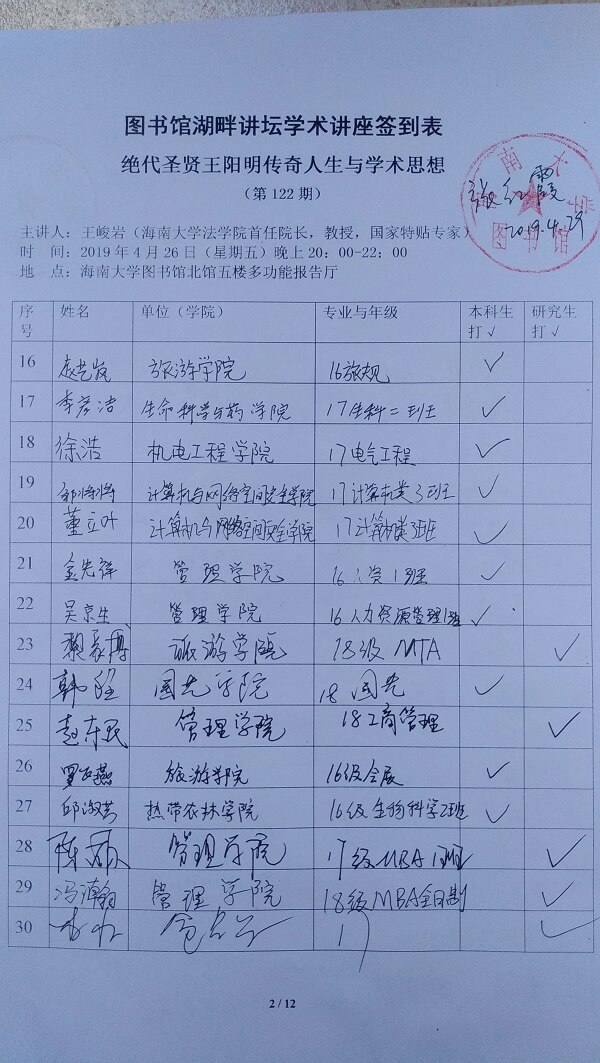 图书馆湖畔讲坛学术讲座签到表
绝代圣贤王阳明传奇人生与学术思想
（第 122 期）
南大
图书馆
2019.4.29
主讲人：王峻岩（海南大学法学院首任院长，教授，国家特贴专家）
时 间：2019 年 4 月 26 日（星期五）晚上 20：00-22；00
地 点：海南大学图书馆北馆五楼多功能报告厅
序号 姓名 单位（学院） 专业与年级 本科生打√ 研究生打√
16 旅游学院 16旅规 √
17 李彦洁 生命科学与药学院 17生科二班 √
18 徐浩 机电工程学院 17电气工程 √
19 邹将将 计算机与网络空间安全学院 17计算机类3班 √
20 董立叶 计算机与网络空间安全学院 17计算机类3班 √
21 金先祥 管理学院 16人资1班 √
22 吴京生 管理学院 16人力资源管理1班 √
23 赖豪博 旅游学院 18级MTA √
24 韩 18 √
25 赵东民 管理学院 18工商管理 √
26 罗 燕 旅游学院 16级会展 √
27 邱淑 热带农林学院 16级生物科学2班 √
28 陈 管理学院 17级MBA1班 √
29 冯瀚翔 管理学院 18级MBA全日制 √
30 17 √
2 / 12